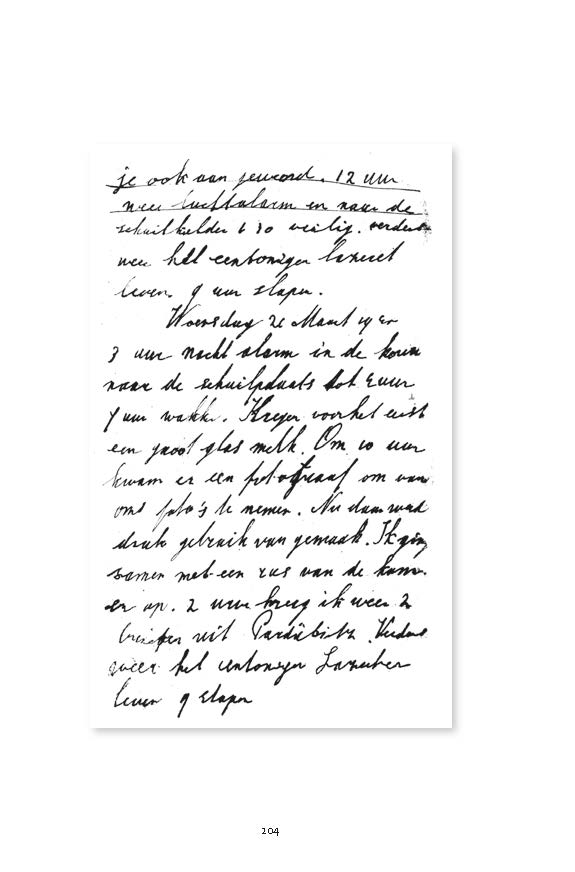 je ook aan gewoord. 12 uur
weer luchtalarm en naar de
schuilkelder 6 30 veilig. verder
weer het eentoniger lazaret
leven. 9 uur slapen.
Woensdag 21 Maart 19
3 uur nacht alarm in de kou
naar de schuilplaats tot 5 uur
7 uur wakker. Kregen voor het eerst
een groot glas melk. Om 10 uur
kwam er een fotograaf om van
ons foto's te nemen. Nu daar werd
druk gebruik van gemaakt. Ik ging
samen met een rus van de kam
er op. 2 uur kreeg ik weer 2
brieven uit Pardubitz. Verder
weer het eentoniger Lazaret
leven 9 slapen
204